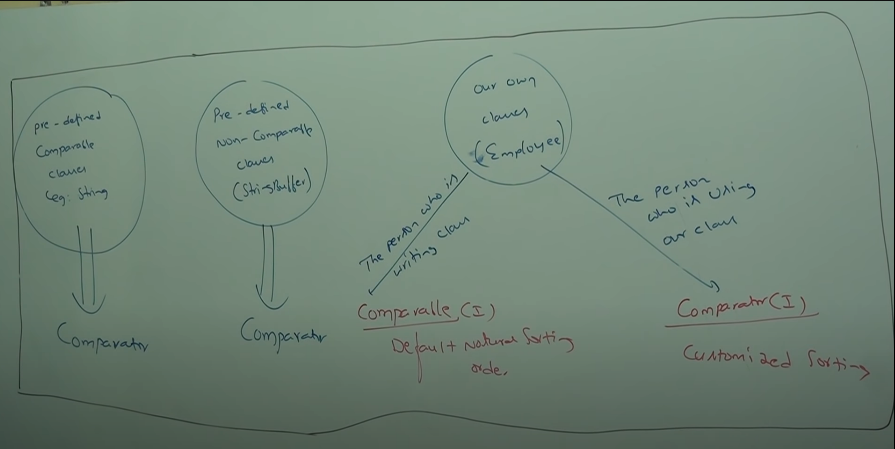 pre-defined
Comparable
classes
(eg: String
Comparator
Pre-defined
non-Comparable
classes
(StringBuffer)
Comparator
our own
classes
(Employee)
The person who is
writing class
Comparable (I)
Default Natural Sorting
order
The person
who is using
our class
Comparator (I)
Customized Sorting